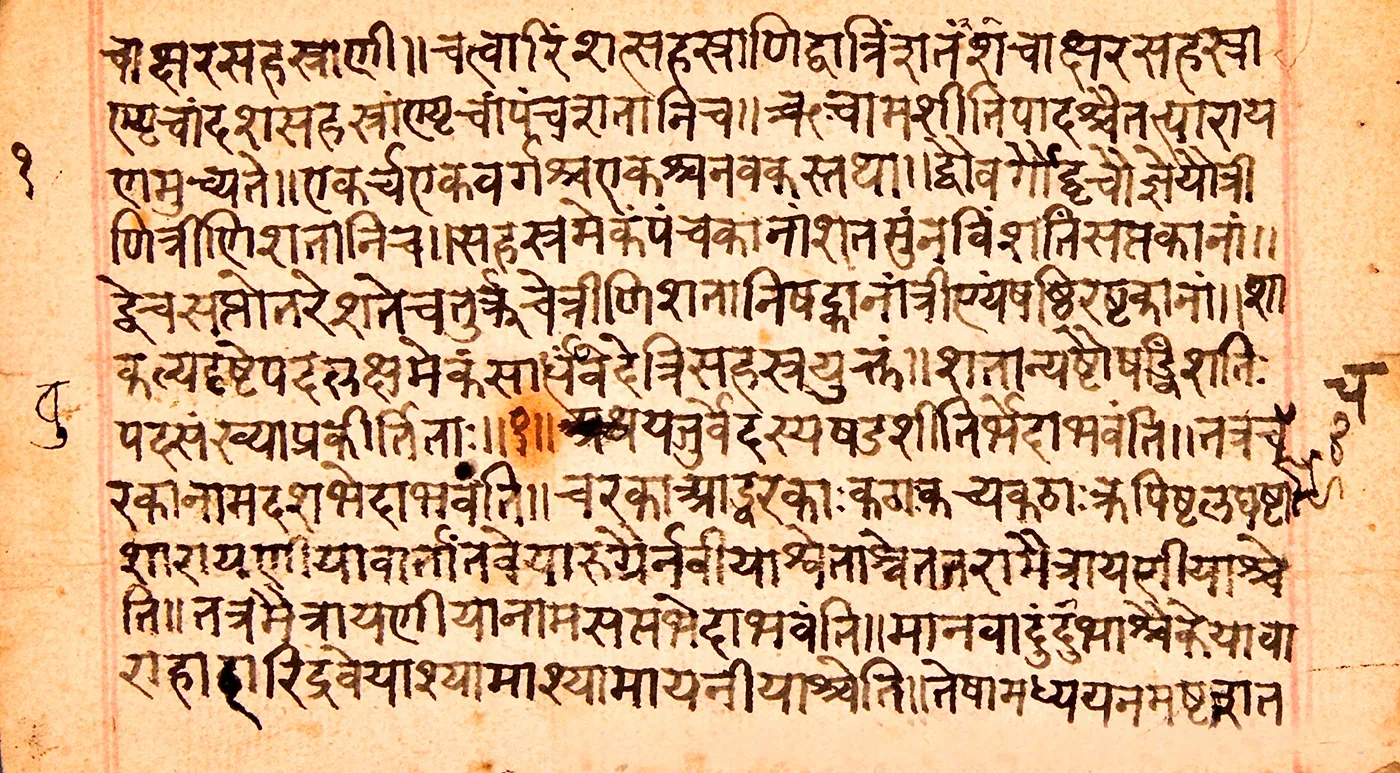 चाक्षरसहस्राणी॥चत्वारिंशत्सहस्राणिद्वात्रिंशतंशंचाक्षरसहस्रा
ण्यृचांदशसहस्राण्यृचांपंचशतानिच॥ऋचामशीतिपादश्चैतत्पाराय
णमुच्यते॥एकर्चएकवर्गश्चएकश्चनवकस्तथा॥द्वौवर्गौद्वृचौज्ञेयौत्री
णित्रीणिशतानिच॥सहस्रमेकंपंचकानांशतसुंनविंशतिसप्तकानां॥
द्वेचसप्तोतरेशतेचतुर्ऋचेत्रीणिशतानिषट्कानांत्रीण्यंषष्ठिरष्टकानां॥शा
कल्यदृष्टेपदलक्षमेकंसार्धंवेदेत्रिसहस्रयुक्तं॥शतान्यष्टौषड्विंशतिः
पदसंख्याप्रकीर्तिताः॥१॥अथयजुर्वेदस्यषडशीतिर्भेदाभवंति॥तत्रच
रकानामदशभेदाभवंति॥चरकाआह्वरकाःकठाःकच्यकठाःकपिष्टलघष्टा
शारायणीयावार्तांतवेयाश्वेताश्वेततरामैत्रायणीयाश्चे
ति॥तत्रमैत्रायणीयानामसप्तभेदाभवंति॥मानवादुंदुभाश्चैकेयावा
राहाहारिद्रवेयाश्यामाश्यामायनीयाश्चेति॥तेषामध्ययनमष्टशत
१
च